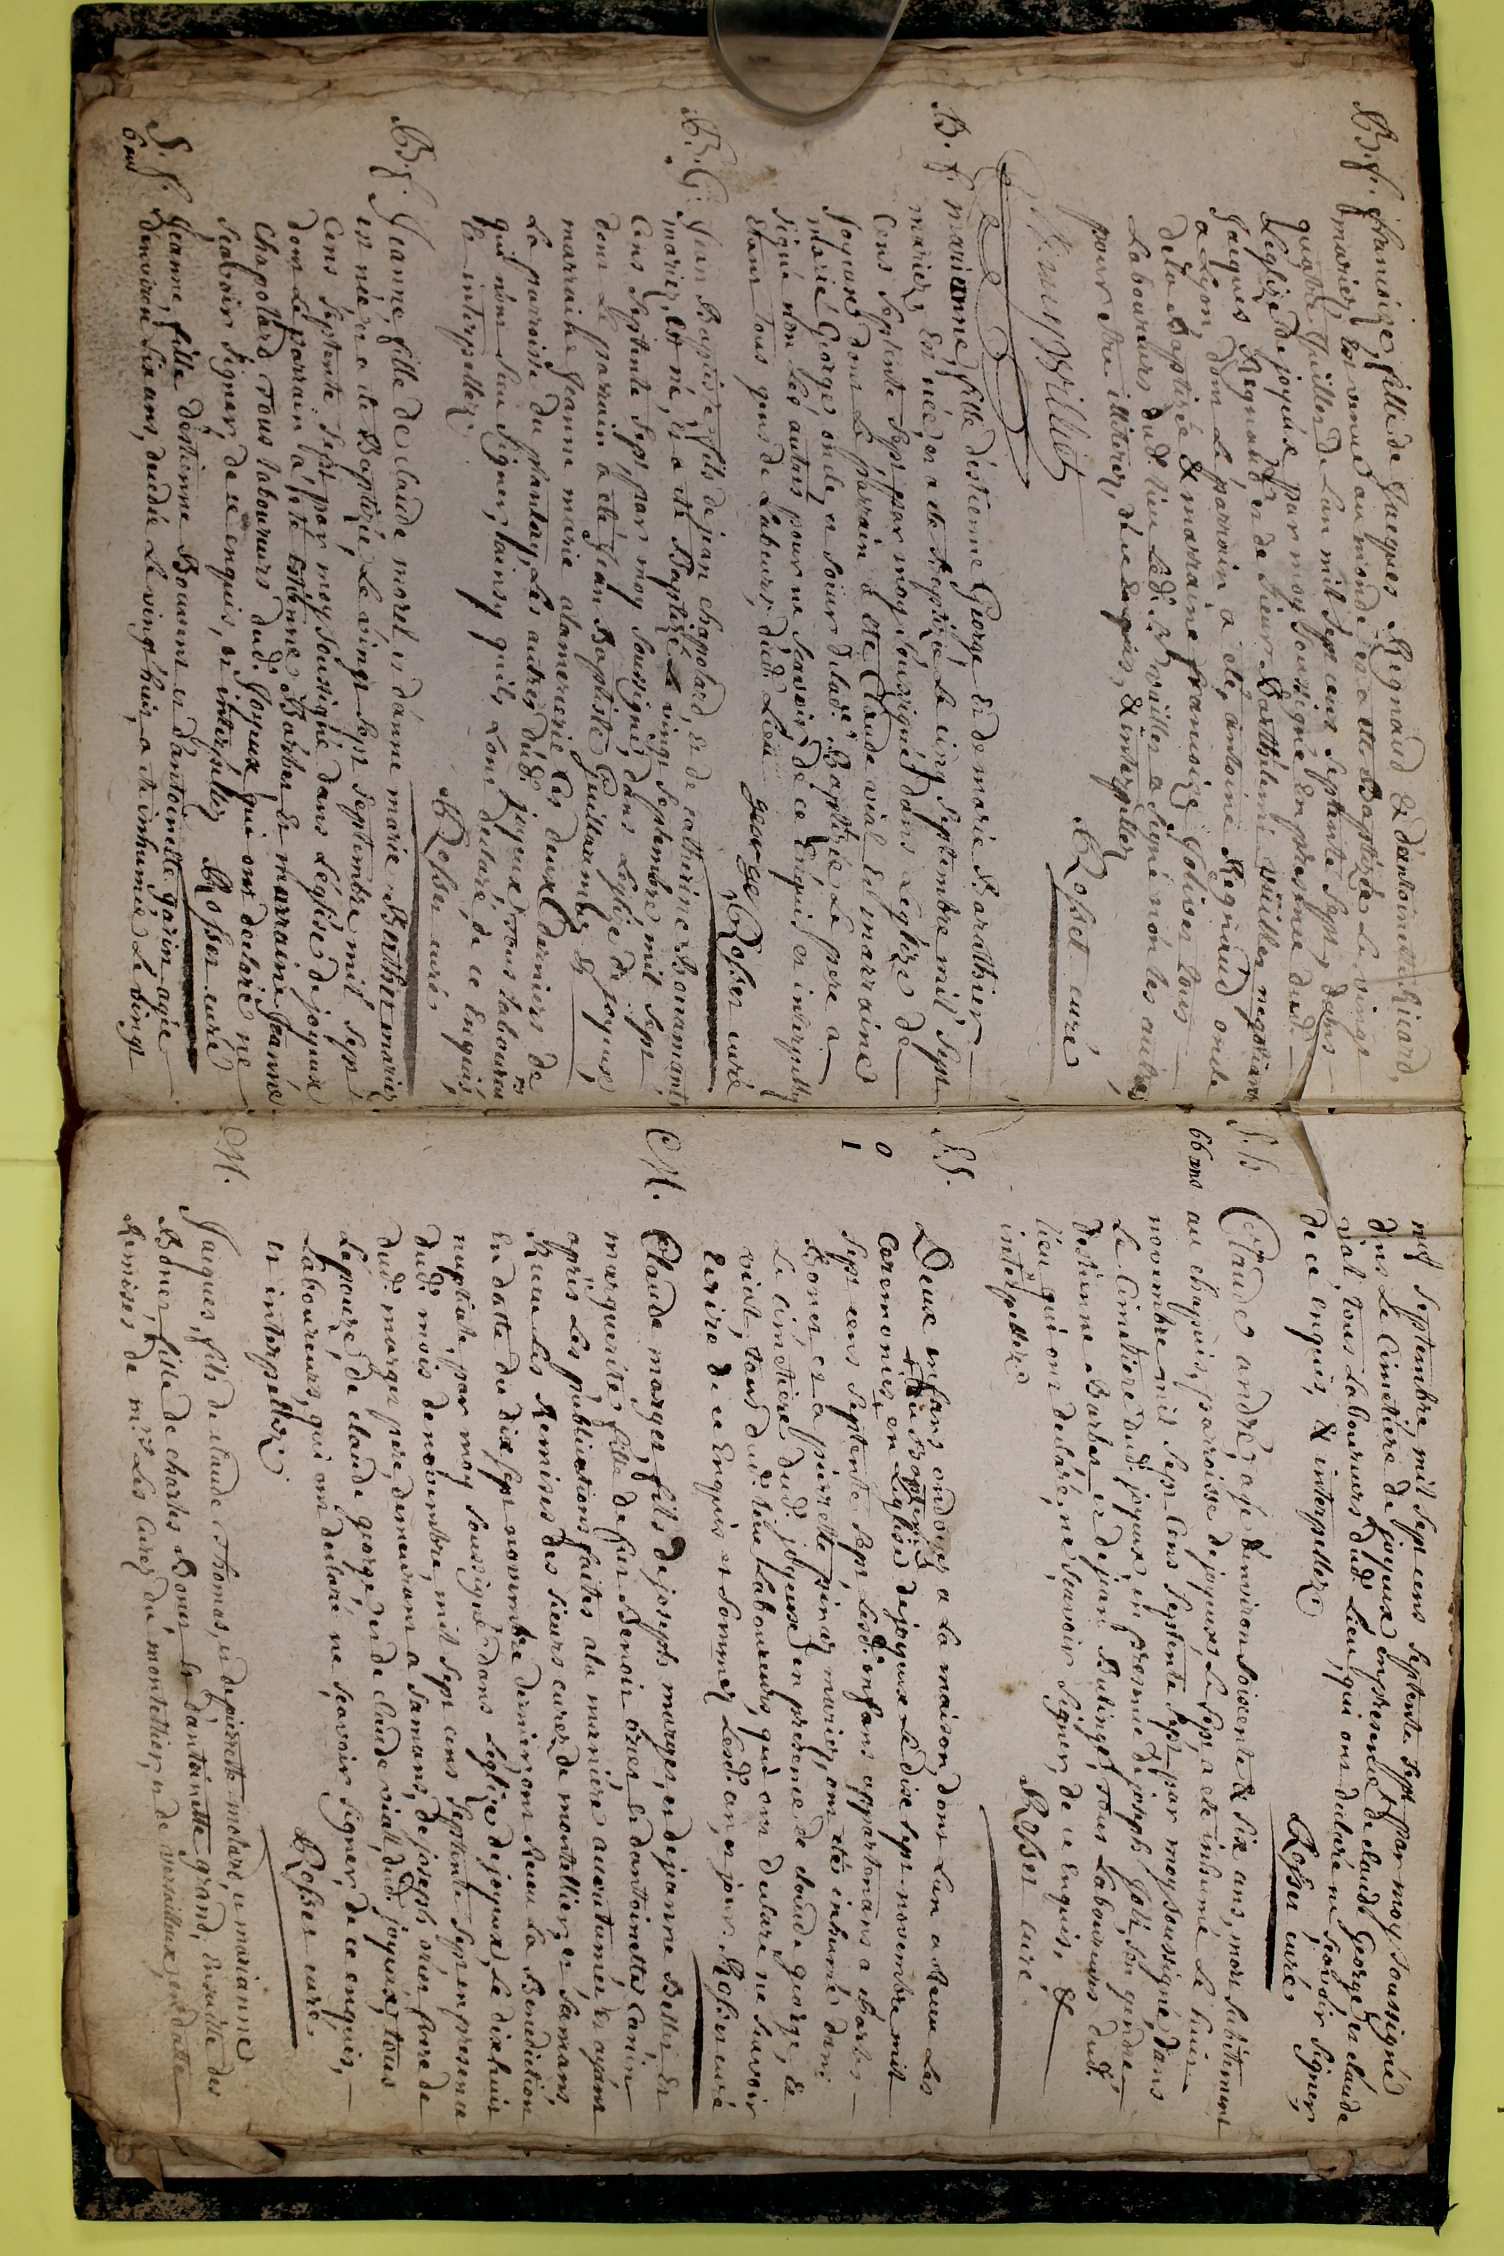 B. f. francoise, fille de Jacques Regnaud & d'antoinette Ricard,
mariez est venue au monde et a ete Baptizée le vingt
quatre Juillet de lan mil sept cens septente sept, dans
Leglize de joyeux par moy soussigné en presence dudt
Jacques Regnaud et de sieur Barthelemi vuiller negotiant
a Lyon, dont le parrain a ete antoine Regnaud oncle
de la Baptizée & marraine francoise Golivet tous
Laboureurs dudt lieu ledt sr vuiller a signé non les autres
pour etre illiterez, de ce enquis, & interpellez
Rosset curé
B. f. marianne, fille d'estienne George & de marie Baratthier
mariez, est née, et a ete Baptizée le cinq septembre mil sept
cens septente sept par moy soussigné dans Leglize de
Joyeux dont le parrain a ete Claude vial et marraine
marie George, oncle, et soeur de ladte Baptizée le pere a
signé non les autres pour ne scavoir, de ce enquis et interpellez
etant tous gens de Labeurs, dudt Lieu
george Rosset curé
B. G. Jean Baptiste, fils de jean chapolard, & de catherine Bonamant
mariez, est né, et a ete Baptizé le vingt septembre mil sept
cens septente sept par moy soussigné, dans Leglize de joyeux,
dont le parrain a ete Jean Baptiste Guillaumez &
marraine Jeanne marie alamercerie les deux derniers de
la parroisse du plantay, les autres dudt joyeux tous laboureurs
qui n'ont sceu signer, ainsy quils L'ont declaré de ce enquis,
et interpellez
Rosset curé
B. f. Jeanne, fille de claude morel et danne marie Berthet mariez
est née, et a ete Baptizée le vingt sept septembre mil sept
cens septente sept par moy soussigné dans l'eglise de joyeux
dont le parrain a ete estienne Barbet & marraine jeanne
chapolard tous laboureurs dudt Joyeux qui ont declaré ne
scavoir signer, de ce enquis, et interpellez Rosset curé
S. f. Jeanne, fille d'estienne Bouvent et d'antoinette garin agée
6 ans d'environ six ans, decedée le vingt huit, a ete inhumée le vingt
neuf septembre mil sept cens septente sept par moy soussigné
dans le cimetiere de joyeux en presence de claude George et claude
vial tous laboureurs dudt lieu, qui ont declaré ne scavoir signer,
de ce enquis, & interpellez
Rosset curé
S. h. Claude andré agé d'environ soixente & six ans, mort subitement
66 ans au chappuis, parroisse de joyeux, le sept, a ete inhumé le huit
novembre mil sept cens septente sept par moy soussigné, dans
le cimetiere dudt joyeux, en presence de joseph Goli, son gendre
destienne Barbet et de jean Bulinge, tous laboureurs dudt
lieu qui ont declaré, ne scavoir signer, de ce enquis, &
interpellez
Rosset curé
S. S. Deux enfans ondoyez a la maison, dont l'un a receu les
ceremonies du Bapteme en Leglise de joyeux le dixe sept novembre mil
0 sept cens septente sept lesdts enfans appartenans a charles
1 Bonet et a pierrette pinaz mariez, ont étés inhumé dans
le cimetiere dudt joyeux en presence de claude george, &
vial, tous dudt lieu Laboureurs, qui ont declare ne scavoir
ecrire de ce Enquis et sommez lesdts an, et jour. Rosset curé
M. Claude marget, fils de joseph marget, et de jeanne Bellet &
marguerite fille de feu Benoit et dantoinette Canin
après les publications faites a la maniére accoutumée et ayant
Receu les Remises des sieurs curez de montellier, et samans
en datte du dix sept novembre dernier, ont Receu la Benediction
nuptiale, par moy soussigné dans leglize de joyeux, le dix huit
dudt mois de novembre, mil sept cens septente sept en presence
dudt marget pere, demeurant a samans, de joseph orsét frere de
lepouze, de claude george et de claude vial, dudt joyeux, tous
Laboureurs, qui ont declaré ne, scavoir signer, de ce enquis,
et interpellez
Rosset curé
M. Jacques, fils de claude Thomas, et de pierrette molard, et marianne
Bonet, fille de charles Bonet & d'antoinette grand, ensuitte des
Remises, de mrs les curez du montellier, et de versailleux, en datte